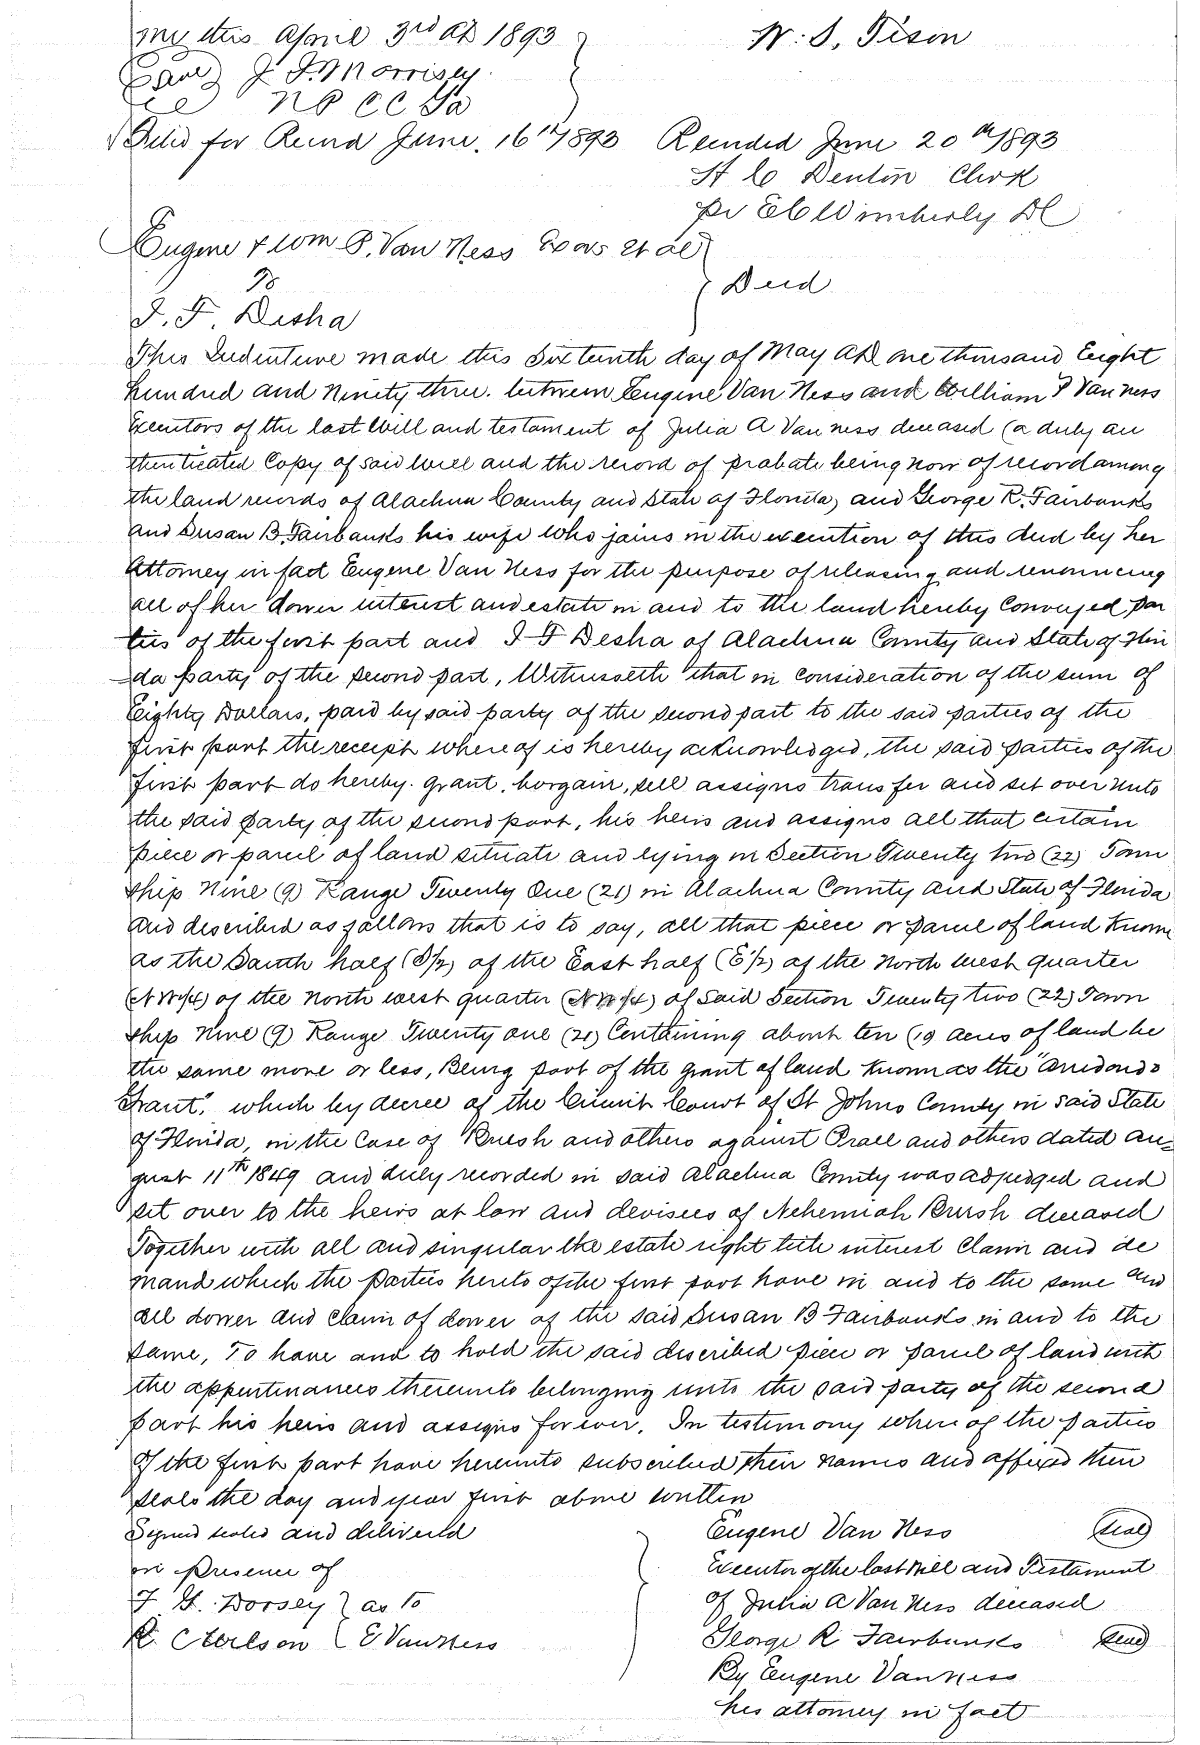 my this April 3rd AD 1893
W. S. Tison
Seal J. F. Morrisey
N P CC Ga
Filed for Record June. 16th/1893 Recorded June 20th/1893
H C Denton Clerk
pr E C Wimberly DC
Eugene & Wm P. Van Ness Exors et al
To
Deed
I. F. Desha
This Indenture made this Sixteenth day of May AD one thousand Eight
hundred and Ninety three. between Eugene Van Ness and William P Van Ness
Executors of the last Will and testament of Julia A Van Ness deceased (a duly au
thenticated Copy of said will and the record of probate being now of record among
the land records of Alachua County and State of Florida) and George R. Fairbanks
and Susan B. Fairbanks his wife who joins in the execution of this deed by her
Attorney in fact Eugene Van Ness for the purpose of releasing and renouncing
all of her dower interest and estate in and to the land hereby Conveyed par
ties of the first part and I F Desha of Alachua County and State of Flori
da party of the second part, Witnesseth that in consideration of the sum of
Eighty Dollars, paid by said party of the second part to the said parties of the
first part the receipt where of is hereby acknowledged, the said parties of the
first part do hereby. grant, bargain, sell assigns transfer and set over unto
the said party of the second part, his heirs and assigns all that certain
piece or parcel of land situate and lying in Section Twenty two (22) Town
ship Nine (9) Range Twenty One (21) in Alachua County and State of Florida
and described as follows that is to say, all that piece or parcel of land known
as the South half (S1/2) of the East half (E1/2) of the North west quarter
(N W1/4) of the North west quarter (N W1/4) of Said Section Twenty two (22) Town
ship Nine (9) Range Twenty one (21) Containing about ten (10 acres of land be
the same more or less, Being part of the grant of land known as the "Arredondo
Grant", which by decree of the Circuit Court of St Johns County in said State
of Florida, in the Case of Brush and others against Prall and others dated Au=
gust 11th 1849 and duly recorded in said Alachua County was adjudged and
set over to the heirs at law and devisees of Nehemiah Brush deceased
Together with all and singular the estate right title interest Claim and de
mand which the Parties hereto of the first part have in and to the same and
all dower and claim of dower of the said Susan B Fairbanks in and to the
same, To have and to hold the said described piece or parcel of land with
the appurtinances thereunto belonging unto the said party of the second
part his heirs and assigns for ever. In testimony where of the parties
of the first part have hereunto subscribed their names and affixed their
seals the day and year first above written
Signed sealed and delivered
in presence of
F. G. Dorsey } as to
R. C Wilson { E Van Ness
Eugene Van Ness Seal
Executor of the last Will and Testament
of Julia A Van Ness deceased
George R Fairbanks Seal
By Eugene Van Ness
his attorney in fact